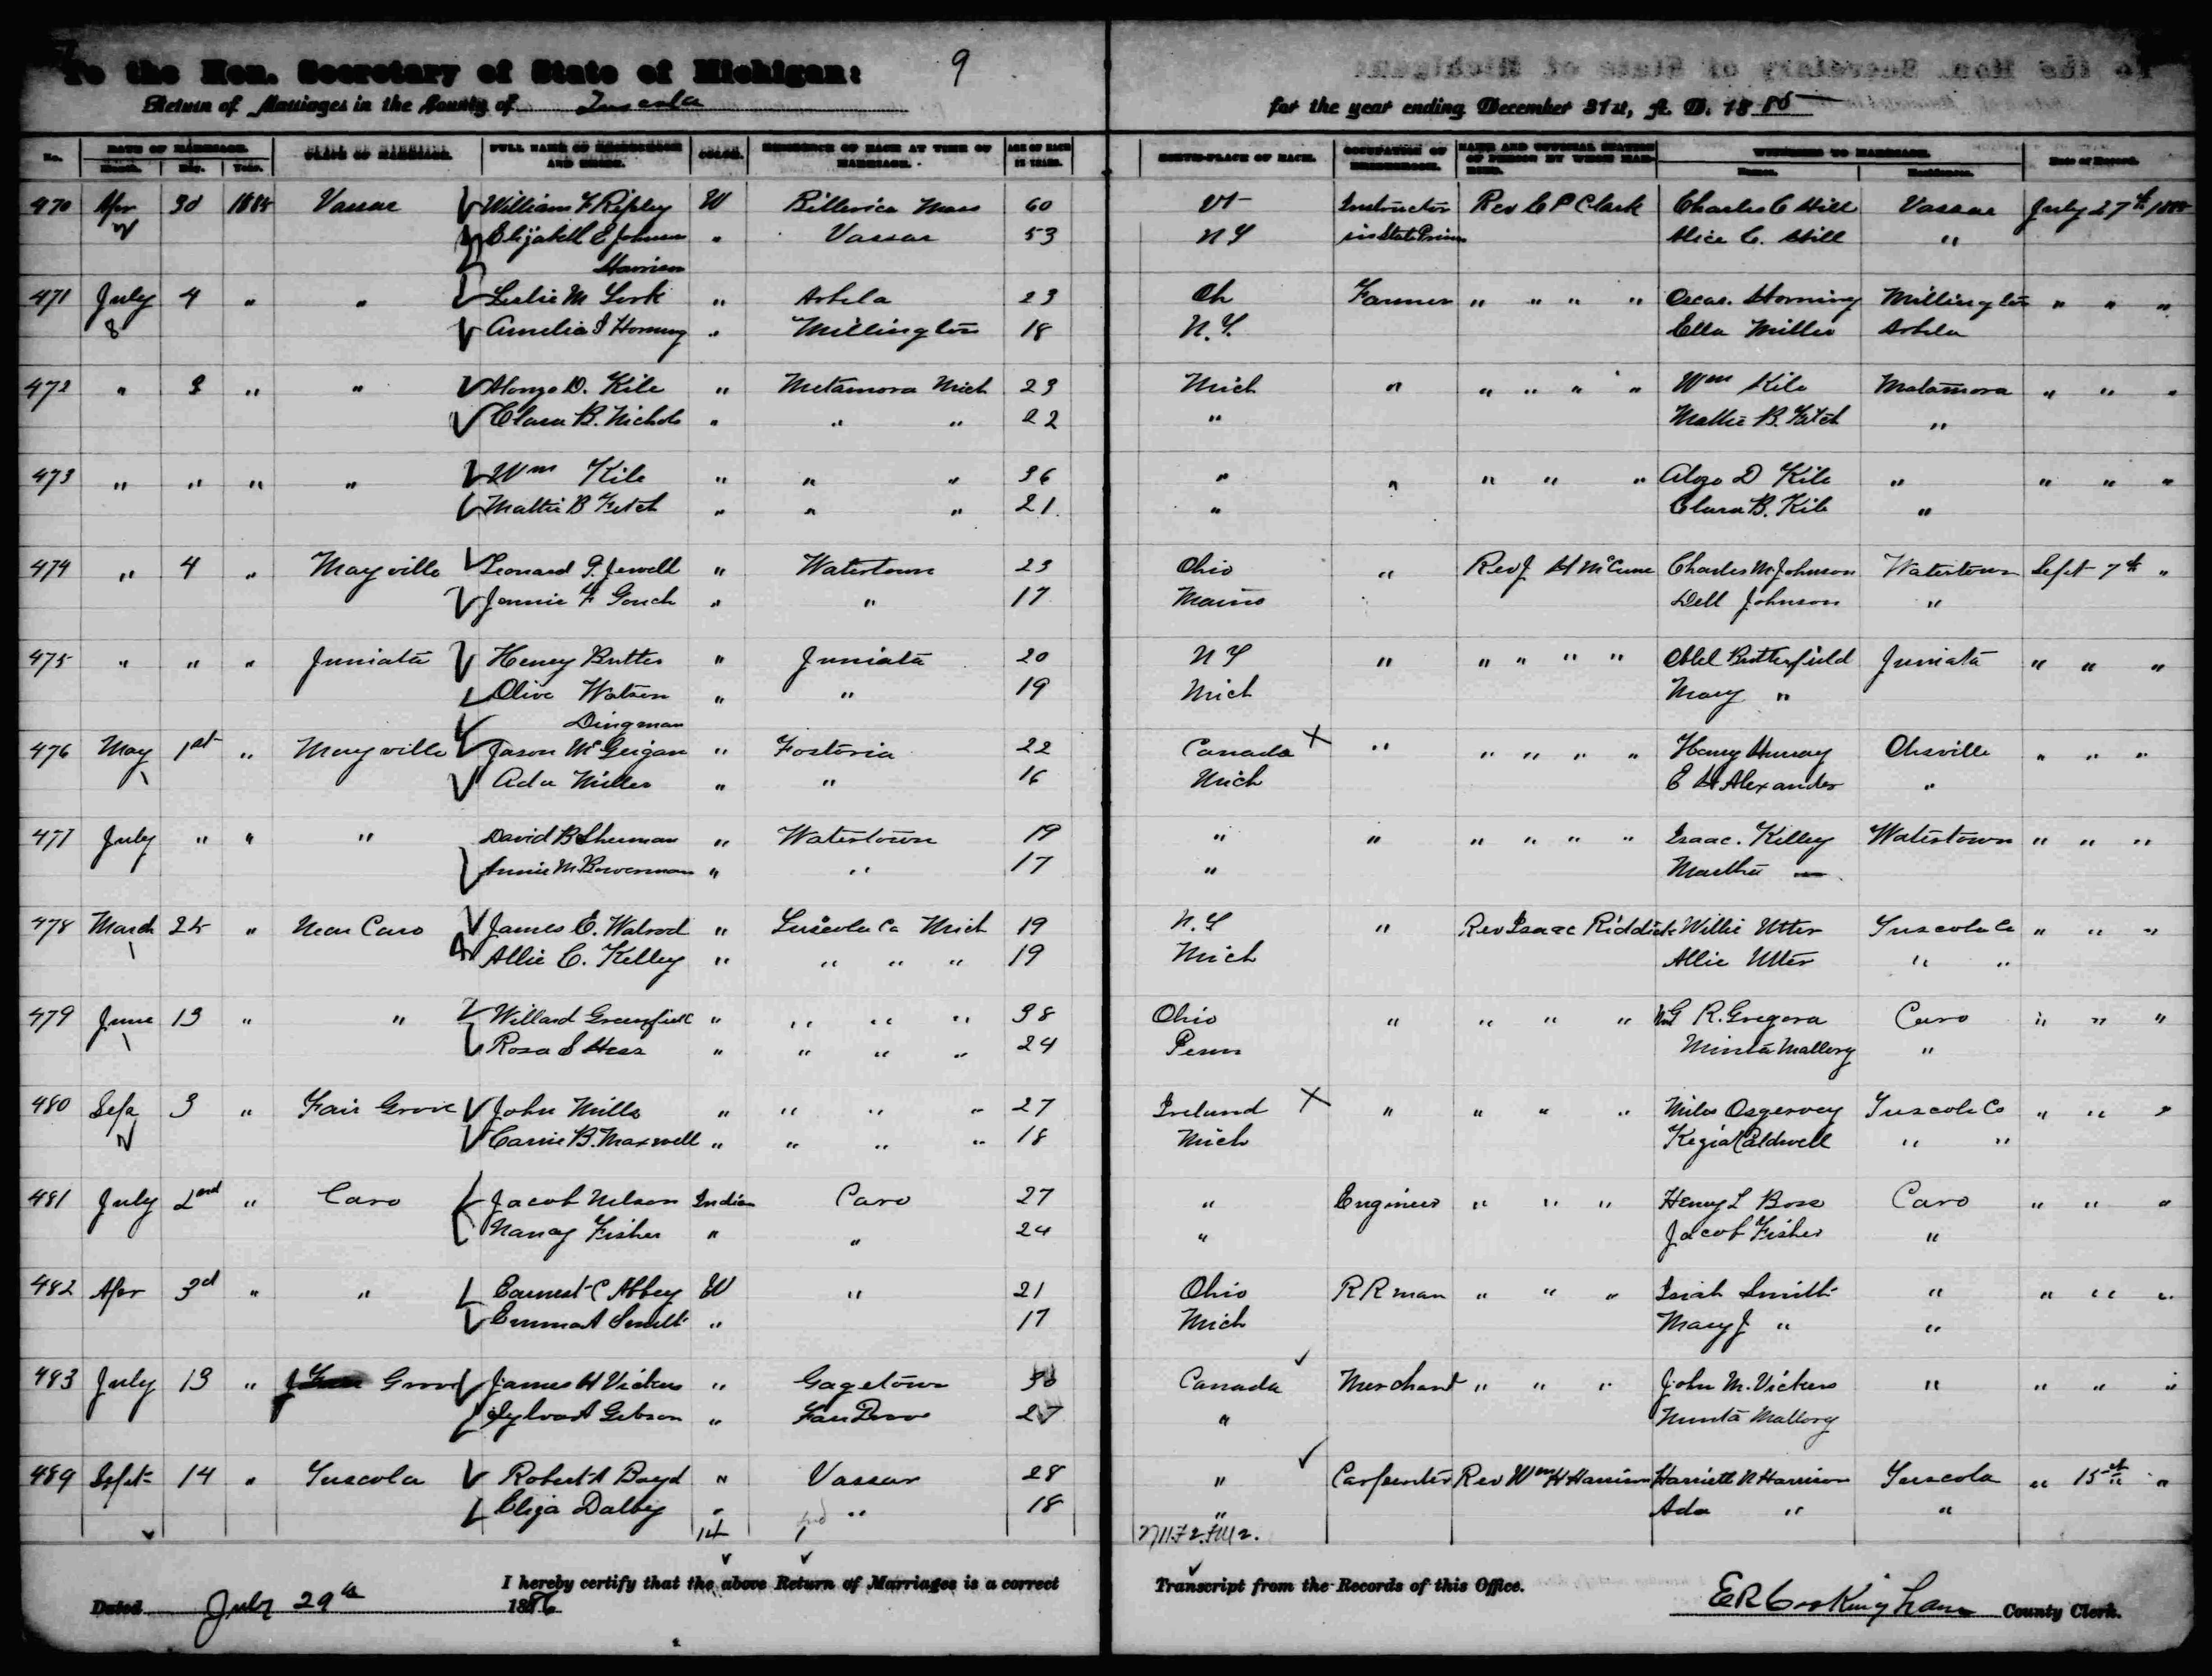 To the Hon. Secretary of State of Michigan: 9
Return of Marriages in the County of Tuscola for the year ending December 31st, A. D. 1885
No. DATE OF MARRIAGE. PLACE OF MARRIAGE. FULL NAME OF BRIDEGROOM AND BRIDE. COLOR. RESIDENCE OF EACH AT TIME OF MARRIAGE. AGE OF EACH IN YEARS. BIRTH-PLACE OF EACH. OCCUPATION OF BRIDEGROOM. NAME AND OFFICIAL STATION OF PERSON BY WHOM MARRIED. WITNESSES TO MARRIAGE. Date of Record.
Month. Day. Year. Names. Residences.
470 Apr 30 1885 Vassar William F Ripley W Billerica Mass 60 Vt Instructor Rev C P Clark Charles C Hill Vassar July 27th 1885
Elizabeth E Johnson " Vassar 53 N Y in State Prison Alice C. Hill "
Harrison
471 July 4 " " Leslie M York " Arbela 23 Oh Farmer " " " " Oscar. Horning Millington " " "
8 Amelia I Horning " Millington 18 N.Y. Ella Miller Arbela
472 " 3 " " Alonzo D. Kile " Metamora Mich 23 Mich " " " " " Wm Kile Matamora " " "
Clara B. Nichols " " " 22 " Mattie B. Fitch "
473 " " " " Wm Kile " " " 36 " " " " " Alozo D Kile " " " "
Mattie B Fitch " " " 21 " Clara B. Kile "
474 " 4 " Mayville Leonard G. Jewell " Watertown 23 Ohio " Rev J H McCune Charles M Johnson Watertown Sept 7th "
Jennie F Gouch " " 17 Maine Dell Johnson "
475 " " " Juniata Henry Butter " Juniata 20 N Y " " " " " Abel Butterfield Juniata " " "
Olive Watson " " 19 Mich Mary "
Dingman
476 May 1st " Mayville Jason McGeigan " Fostoria 22 Canada X " " " " " Henry Murray Otisville " " "
Ada Miller " " 16 Mich E H Alexander "
477 July " " " David B Sherman " Watertown 19 " " " " " " Isaac. Killey Watertown " " "
Annie M. Bowerman " " 17 " Martha "
478 March 25 " Near Caro James E. Walrod " Tuscola Co Mich 19 N.Y " Rev Isaac Riddick Willie Utter Tuscola Co " " "
Allie C. Kelley " " " " 19 Mich Allie Utter " "
479 June 13 " " Willard Greenfield " " " " 38 Ohio " " " " R. Gregora Caro " " "
Rosa S Hess " " " " 24 Penn Minta Mallory "
480 Sep 3 " Fair Grove John Mills " " " " 27 Ireland X " " " " Miles Osgervey Tuscola Co " " "
Carrie B. Maxwell " " " " 18 Mich Kezia Caldwell " "
481 July 2nd " Caro Jacob Nelson Indian Caro 27 " Engineer " " " Henry L Boss Caro " " "
Nancy Fisher " " 24 " Jacob Fisher "
482 Apr 3d " " Earnest C Abbey W " 21 Ohio R R man " " " Isiah Smith " " " "
Emma A Smith " 17 Mich Mary J " "
483 July 13 " Grove James H Vickers " Gagetown 30 Canada Merchant " " " John M. Vickers " " " "
Sylva A Gibson " Fair Grove 27 " Minta Mallory
489 Sept 14 " Tuscola Robert A Boyd " Vassar 28 " Carpenter Rev Wm H Harrison Harriett N Harrison Tuscola " 15th "
Eliza Dalby " " 18 " Ada " "
I hereby certify that the above Return of Marriages is a correct Transcript from the Records of this Office.
Dated July 29th 1886 E R Cookingham County Clerk.